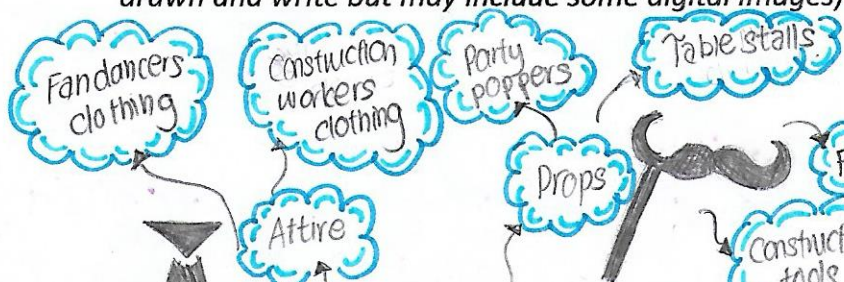 drawn and write but may include some digital images)
Fandancers
clothing
Construction
workers
clothing
Party
poppers
Table stalls
Props
Attire
Construct
tools